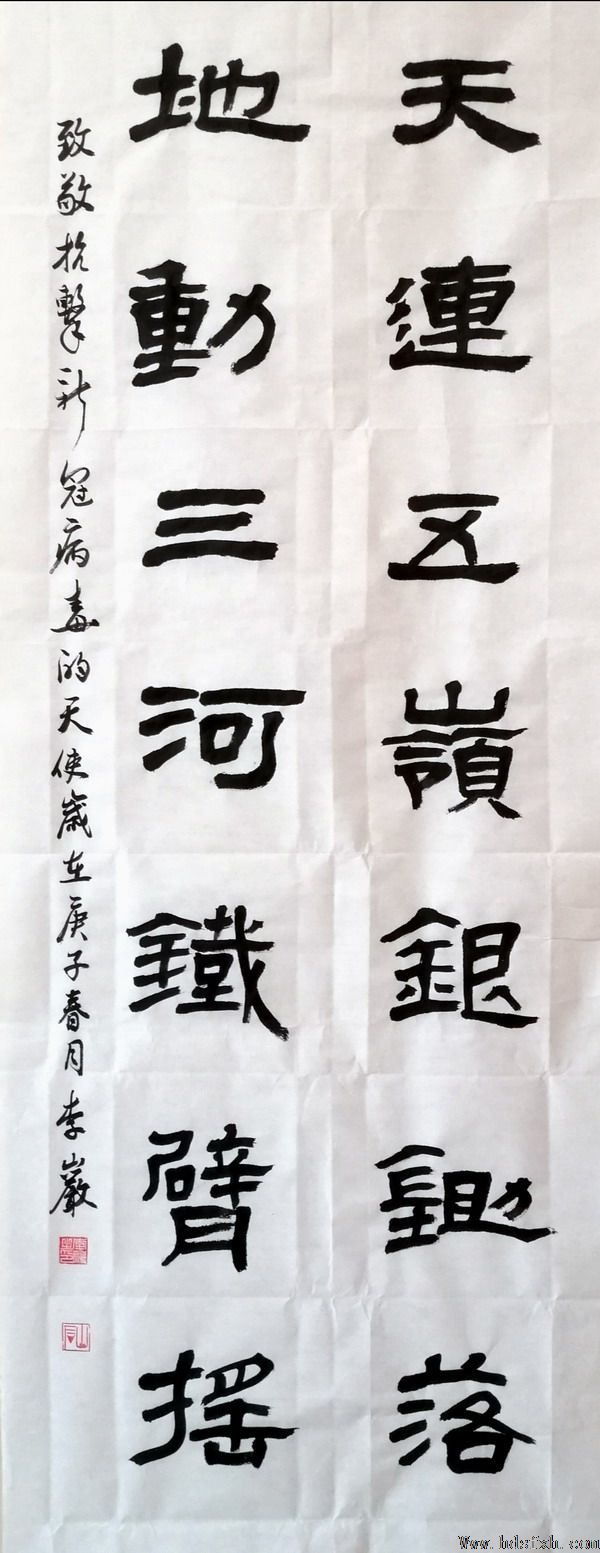 天連五嶺銀鋤落
地動三河鐵臂摇
致敬抗擊新冠病毒的天使歲在庚子春月李巖